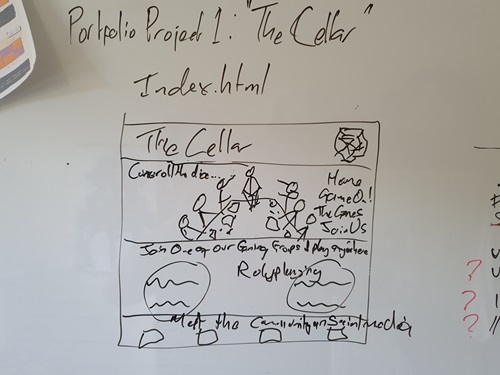 Portfolio Project 1: "The Cellar"
Index.html
The Cellar
Come roll the dice...
Home
Game On!
The Games
Join Us
Join One of our Gaming Groups & play anywhere
Roleplaying
Meet the Community on Social media
?
?
?